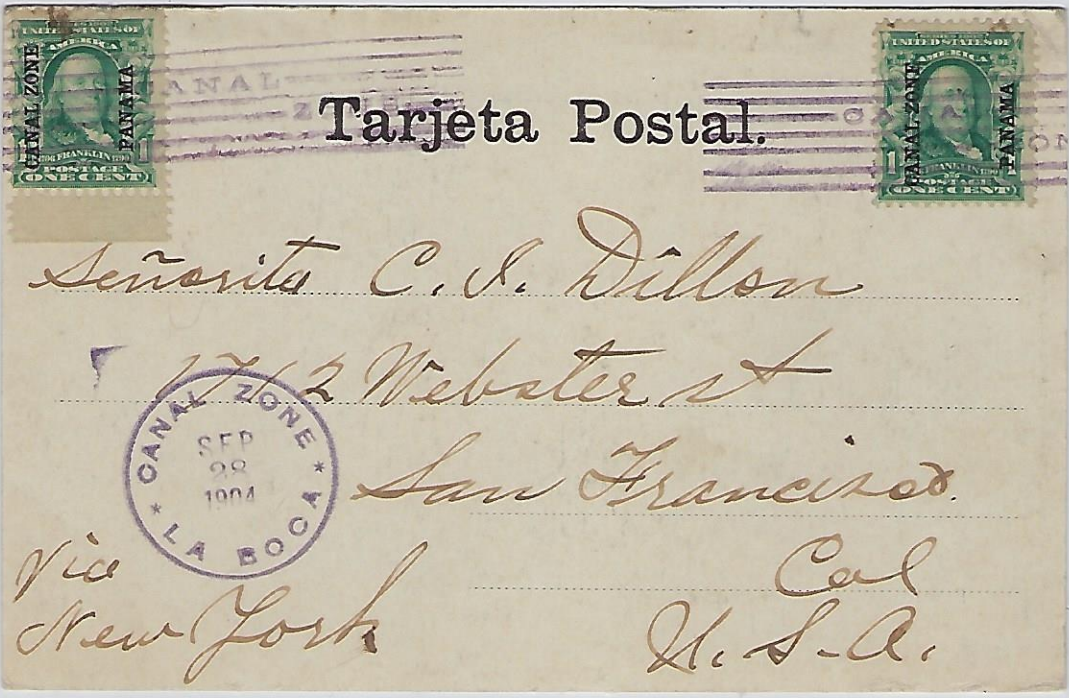 UNITED STATES OF
AMERICA
CANAL ZONE
PANAMA
FRANKLIN
1
POSTAGE
ONE CENT
CANAL
Tarjeta Postal.
UNITED STATES OF
AMERICA
CANAL ZONE
PANAMA
FRANKLIN
1
POSTAGE
ONE CENT
Señorita C. I. Dillon
1712 Webster st
San Francisco.
Cal
U. S. A.
CANAL ZONE
SEP
28
1904
* LA BOCA *
Via
New York